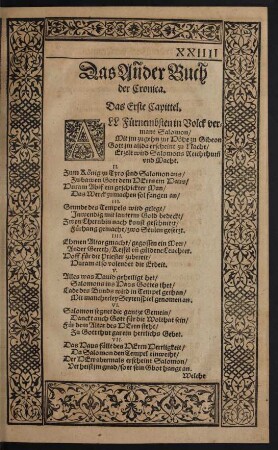 XXIIII
Das Ander Buch
der Cronica.
Das Erste Capittel.
ALL Fürnembsten in Volck ver-
mant Salomon/
Mit jm zugehn zur Höhe in Gibeon
Gott jm alda erscheint zu Nacht/
Erzelt wird Salomons Reichthum
und Macht.
II.
Zum König zu Tyro sand Salomon aus/
Zubawen Gott dem HErren ein Haus/
Huram Abif ein geschickter Man/
Das Werck zumachen sol fangen an/
III.
Grunde des Tempels wird gelegt/
Inwendig mit lauterm Gold bedeckt/
Zween Cherubin nach kunst geschnitzt/
Fürhang gemacht/ zwo Seulen gesetzt.
IIII.
Ehrnen Altar gemacht/ gegossen ein Meer/
Hoff für die Priester zubereit/
Huram also volendet die Erbeit.
V.
Alles was David geheiliget het/
Salomon ins Haus Gottes thet/
Lade des Bunds wird in Tempel gethan/
Mit mancherley Seytenspiel genomen an.
VI.
Salomon segnet die gantze Gemein/
Danckt auch Gott für die Wolthat sein/
Für dem Altar des HErrn steht/
Zu Gott thut gar ein herrlichs Gebet.
VII.
Das Haus füllt des HErrn Herrligkeit/
Da Salomon den Tempel einweiht/
Der HErr abermals erscheint Salomon/
Welche